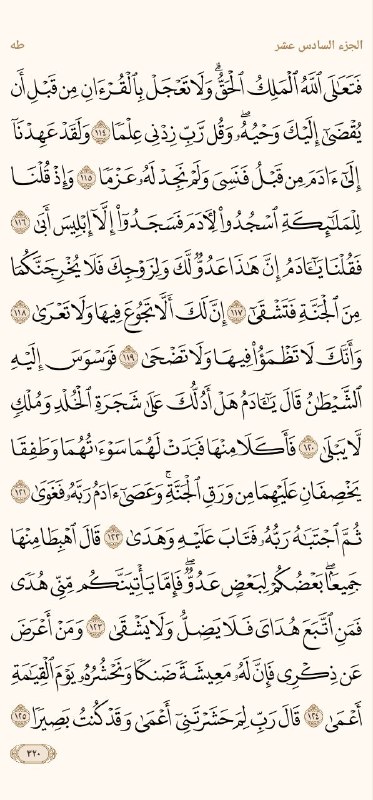 الجزء السادس عشر
طه
فَتَعَٰلَى ٱللَّهُ ٱلْمَلِكُ ٱلْحَقُّ ۗ وَلَا تَعْجَلْ بِٱلْقُرْءَانِ مِن قَبْلِ أَن
يُقْضَىٰٓ إِلَيْكَ وَحْيُهُۥ ۖ وَقُل رَّبِّ زِدْنِى عِلْمًا ١١٤ وَلَقَدْ عَهِدْنَآ
إِلَىٰٓ ءَادَمَ مِن قَبْلُ فَنَسِىَ وَلَمْ نَجِدْ لَهُۥ عَزْمًا ١١٥ وَإِذْ قُلْنَا
لِلْمَلَٰٓئِكَةِ ٱسْجُدُوا۟ لِءَادَمَ فَسَجَدُوٓا۟ إِلَّآ إِبْلِيسَ أَبَىٰ ١١٦
فَقُلْنَا يَٰٓـَٔادَمُ إِنَّ هَٰذَا عَدُوٌّ لَّكَ وَلِزَوْجِكَ فَلَا يُخْرِجَنَّكُمَا
مِنَ ٱلْجَنَّةِ فَتَشْقَىٰٓ ١١٧ إِنَّ لَكَ أَلَّا تَجُوعَ فِيهَا وَلَا تَعْرَىٰ ١١٨
وَأَنَّكَ لَا تَظْمَؤُا۟ فِيهَا وَلَا تَضْحَىٰ ١١٩ فَوَسْوَسَ إِلَيْهِ
ٱلشَّيْطَٰنُ قَالَ يَٰٓـَٔادَمُ هَلْ أَدُلُّكَ عَلَىٰ شَجَرَةِ ٱلْخُلْدِ وَمُلْكٍ
لَّا يَبْلَىٰ ١٢٠ فَأَكَلَا مِنْهَا فَبَدَتْ لَهُمَا سَوْءَٰتُهُمَا وَطَفِقَا
يَخْصِفَانِ عَلَيْهِمَا مِن وَرَقِ ٱلْجَنَّةِ ۚ وَعَصَىٰٓ ءَادَمُ رَبَّهُۥ فَغَوَىٰ ١٢١
ثُمَّ ٱجْتَبَٰهُ رَبُّهُۥ فَتَابَ عَلَيْهِ وَهَدَىٰ ١٢٢ قَالَ ٱهْبِطَا مِنْهَا
جَمِيعًۢا ۖ بَعْضُكُمْ لِبَعْضٍ عَدُوٌّ ۖ فَإِمَّا يَأْتِيَنَّكُم مِّنِّى هُدًى
فَمَنِ ٱتَّبَعَ هُدَاىَ فَلَا يَضِلُّ وَلَا يَشْقَىٰ ١٢٣ وَمَنْ أَعْرَضَ
عَن ذِكْرِى فَإِنَّ لَهُۥ مَعِيشَةً ضَنكًا وَنَحْشُرُهُۥ يَوْمَ ٱلْقِيَٰمَةِ
أَعْمَىٰ ١٢٤ قَالَ رَبِّ لِمَ حَشَرْتَنِىٓ أَعْمَىٰ وَقَدْ كُنتُ بَصِيرًا ١٢٥
٣٢٠